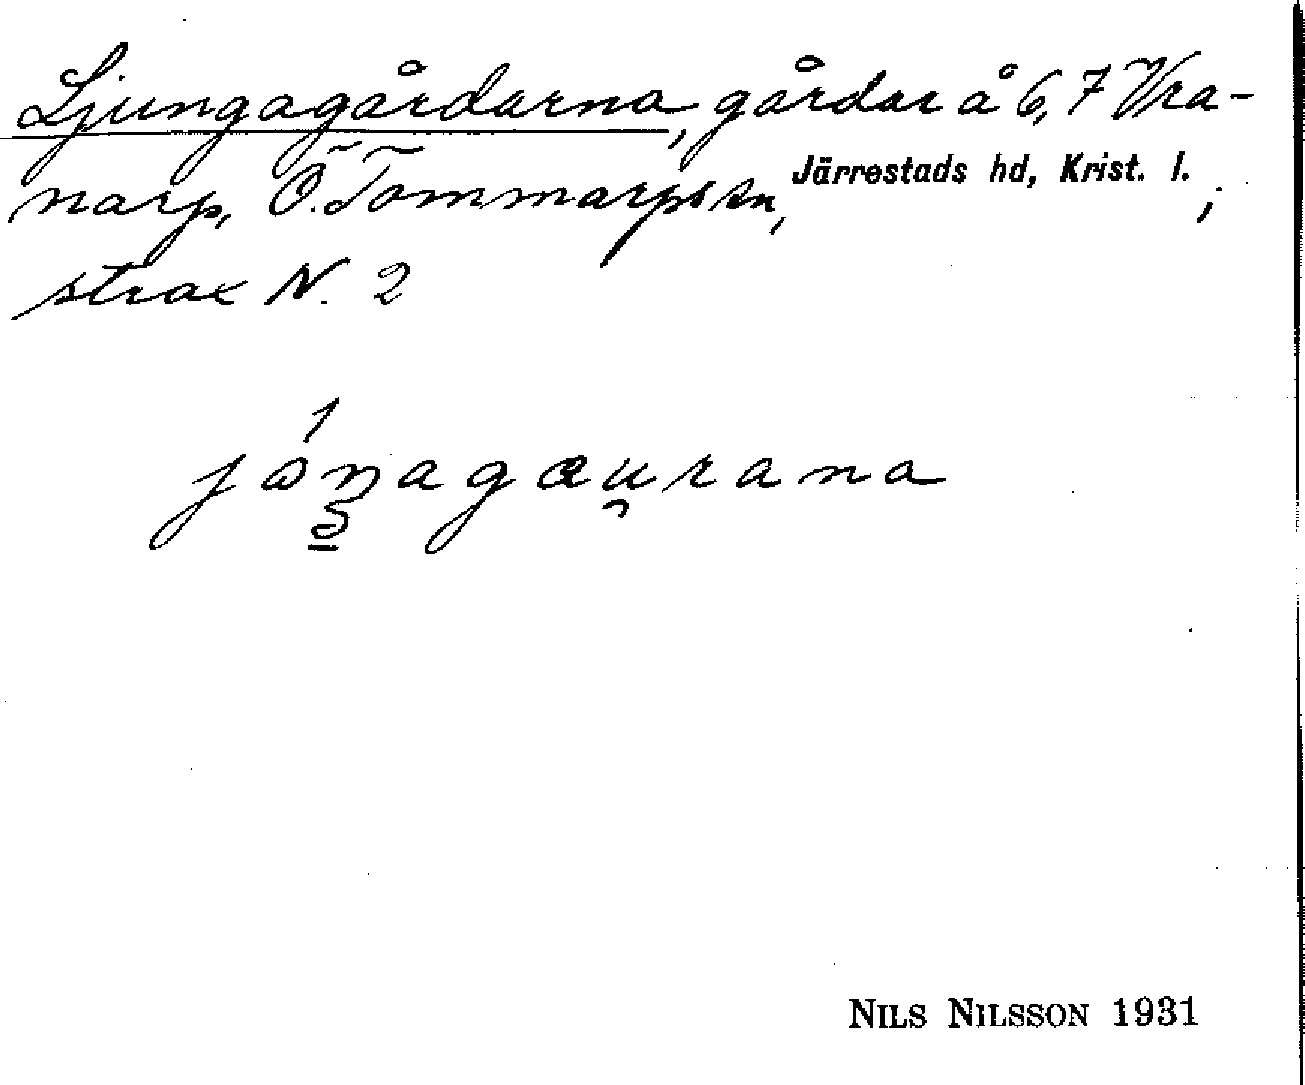 Ljungagårdarna, gårdar å 6, 7 Vra-
narp, Ö. Tommarps sn, Järrestads hd, Krist. l. ;
strax N. 2
jɷ́ŋagæu̯rana
NILS NILSSON 1931